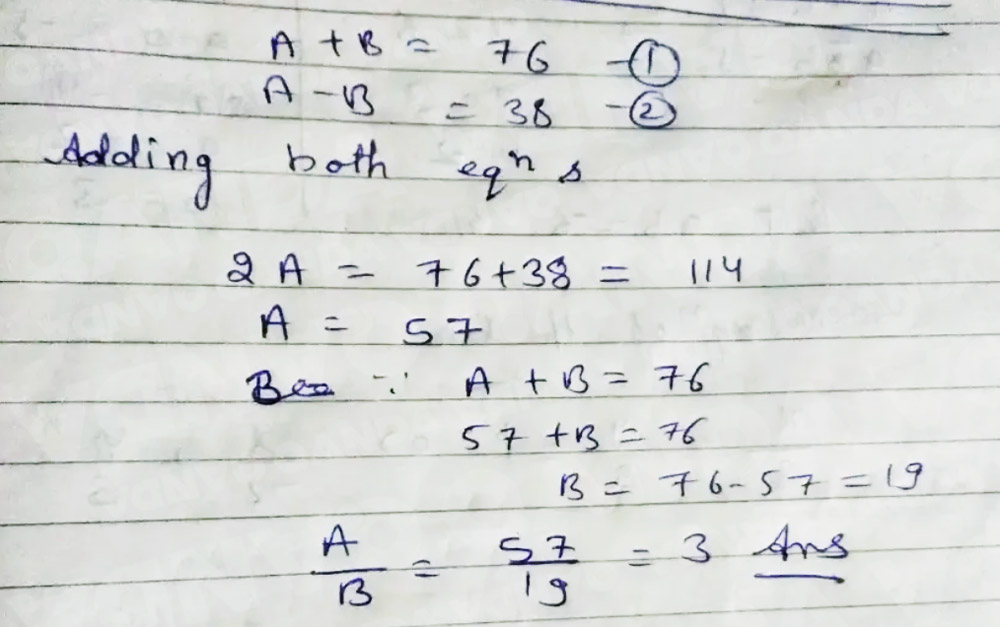 A + B = 76 -①
A - B = 38 -②
Adding both eqⁿ s
2 A = 76+38 = 114
A = 57
∵ A + B = 76
57 + B = 76
B = 76-57 = 19
A/B = 57/19 = 3 Ans